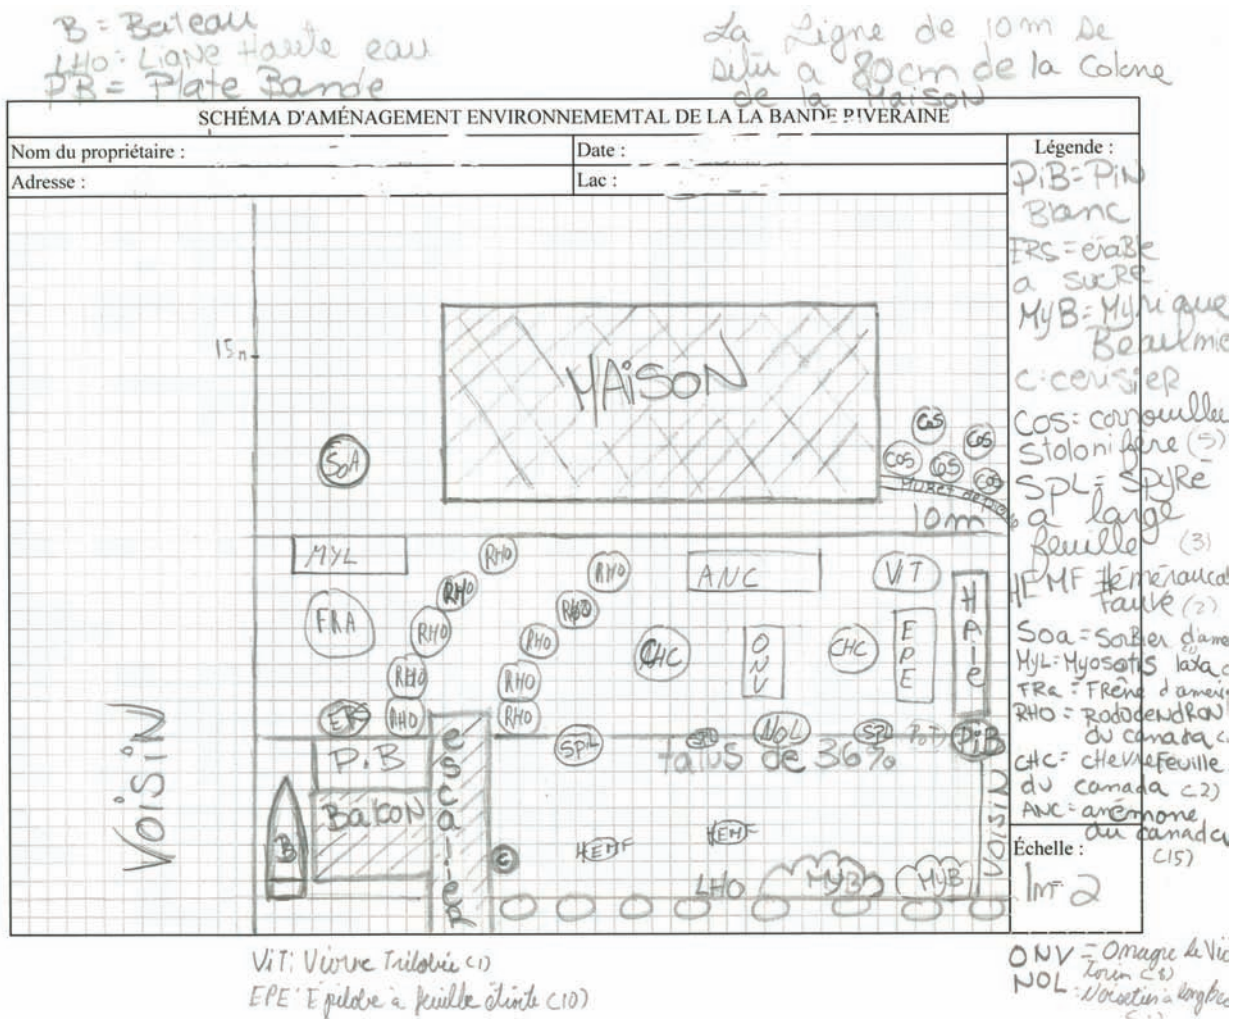 B = Bateau
LHO: Ligne Haute eau
PB = Plate Bande
La Ligne de 10m se
situ a 80cm de la Colone
de la Maison
SCHÉMA D'AMÉNAGEMENT ENVIRONNEMEMTAL DE LA LA BANDE RIVERAINE
Nom du propriétaire :
Date :
Adresse :
Lac :
Légende :
PiB = PiN
Blanc
ERS = éraBle
a sucRe
MyB = Myrique
Beaumie
C: cerisieR
COS: cornouiller
Stolonifère (5)
SPL = SPyRé
a large
feuille (3)
HEMF
fauve (2)
Soa = SorBier d'ame
MyL = Myosotis laxa
FRa = FRêne d'ameri
RHO = RododendRon
du canada
CHC = cHevRefeuille
du canada (2)
ANC = anémone
du canada
(15)
Échelle :
1m = 2
15m
MAISON
SOA
COS
COS
COS
COS
COS
MuRet de
10m
MYL
RHO
RHO
ANC
ViT
RHO
RHO
HAie
FRA
RHO
RHO
CHC
ONV
CHC
EPE
RHO
RHO
ERS
RHO
RHO
SPL
SPL
NOL
SPL
PiB
talus de 36%
P.B
BaLcON
escalieR
B
C
HEMF
HEMF
LHO
MyB
MyB
VOISIN
VOISIN
ViT: Viorne Trilobée (1)
EPE: Épilobe à feuille étroite (10)
ONV = Onagre de Vic
torin (8)
NOL: Noisetier à long bec